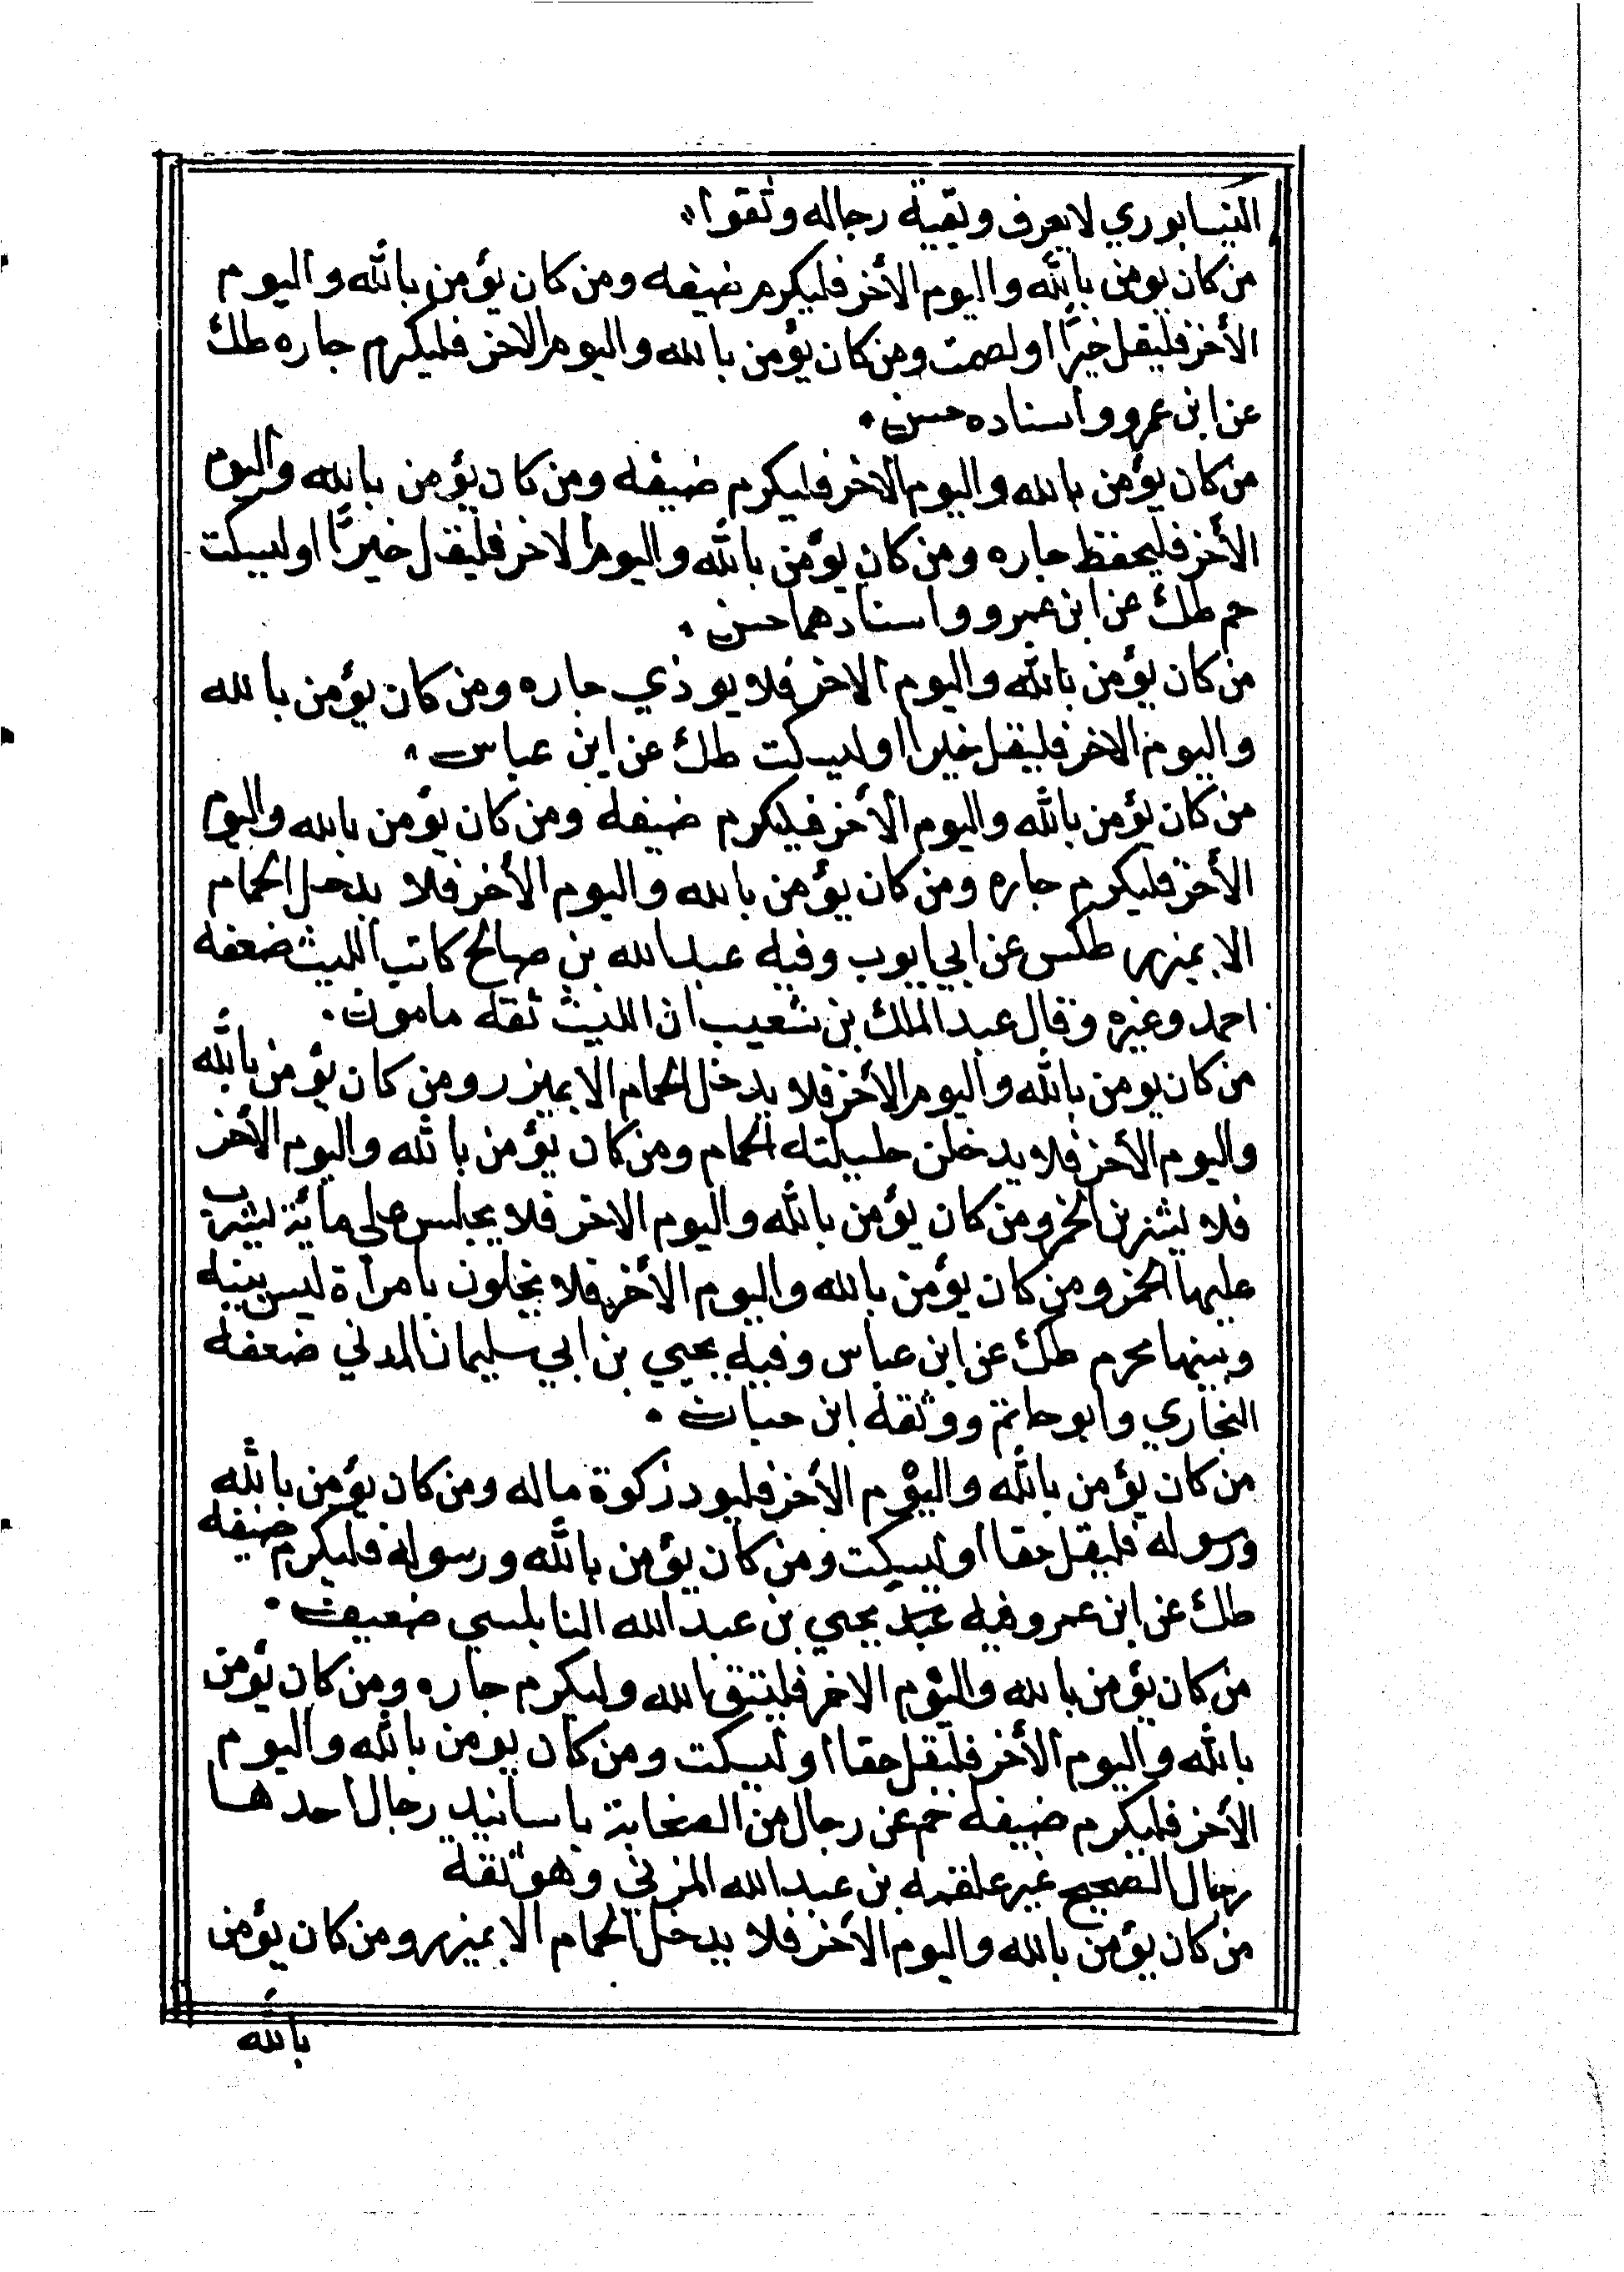 النيسابوري لا يعرف وبقية رجاله وثقوا
من كان يومن بالله واليوم الأخر فليكرم ضيفه ومن كان يؤمن بالله واليوم
الأخر فليقل خيرًا او لصمت ومن كان يؤمن بالله واليوم الاخر فليكرم جاره طك
عن ابن عمرو واسناده حسن
من كان يؤمن بالله واليوم الاخر فليكرم ضيفه ومن كان يؤمن بالله واليوم
الأخر فليحفظ جاره ومن كان يؤمن بالله واليوم الاخر فليقل خيرًا او ليسكت
حم طك عن ابن عمرو واسنادهما حسن
من كان يؤمن بالله واليوم الاخر فلا يوذي جاره ومن كان يؤمن بالله
واليوم الاخر فليقل خيرا او ليسكت طك عن ابن عباس
من كان يؤمن بالله واليوم الأخر فليكرم ضيفه ومن كان يؤمن بالله واليوم
الأخر فليكرم جاره ومن كان يؤمن بالله واليوم الأخر فلا يدخل الحمام
الا بميزر طكس عن ابي ايوب وفيه عبد الله بن صالح كاتب الليث ضعفه
احمد وغيره وقال عبد الملك بن شعيب ان الليث ثقة مامون
من كان يومن بالله واليوم الأخر فلا يدخل الحمام الا بميزر ومن كان يؤمن بالله
واليوم الأخر فلا يدخلن حليلته الحمام ومن كان يؤمن بالله واليوم الأخر
فلا يشربن الخمر ومن كان يؤمن بالله واليوم الاخر فلا يجلس على مائة يشرب
عليها الخمر ومن كان يؤمن بالله واليوم الأخر فلا يخلون بامرأة ليس بينه
وبينها محرم طك عن ابن عباس وفيه يحيي بن ابي سليمان المدني ضعفه
البخاري وابو حاتم ووثقه ابن حبان
من كان يؤمن بالله واليوم الأخر فليود زكوة ماله ومن كان يؤمن بالله
ورسوله فليقل حقا او ليسكت ومن كان يؤمن بالله ورسوله فليكرم ضيفه
طك عن ابن عمر وفيه يحيي بن عبد الله النابلسي ضعيف
من كان يؤمن بالله واليوم الاخر فليتق الله وليكرم جاره ومن كان يؤمن
بالله واليوم الأخر فليقل حقا او ليسكت ومن كان يومن بالله واليوم
الأخر فليكرم ضيفه حم عن رجال من الصحابة باسانيد رجال احدها
رجال الصحيح غير علقمه بن عبد الله المزني وهو ثقة
من كان يؤمن بالله واليوم الأخر فلا يدخل الحمام الا بميزر ومن كان يؤمن
بالله